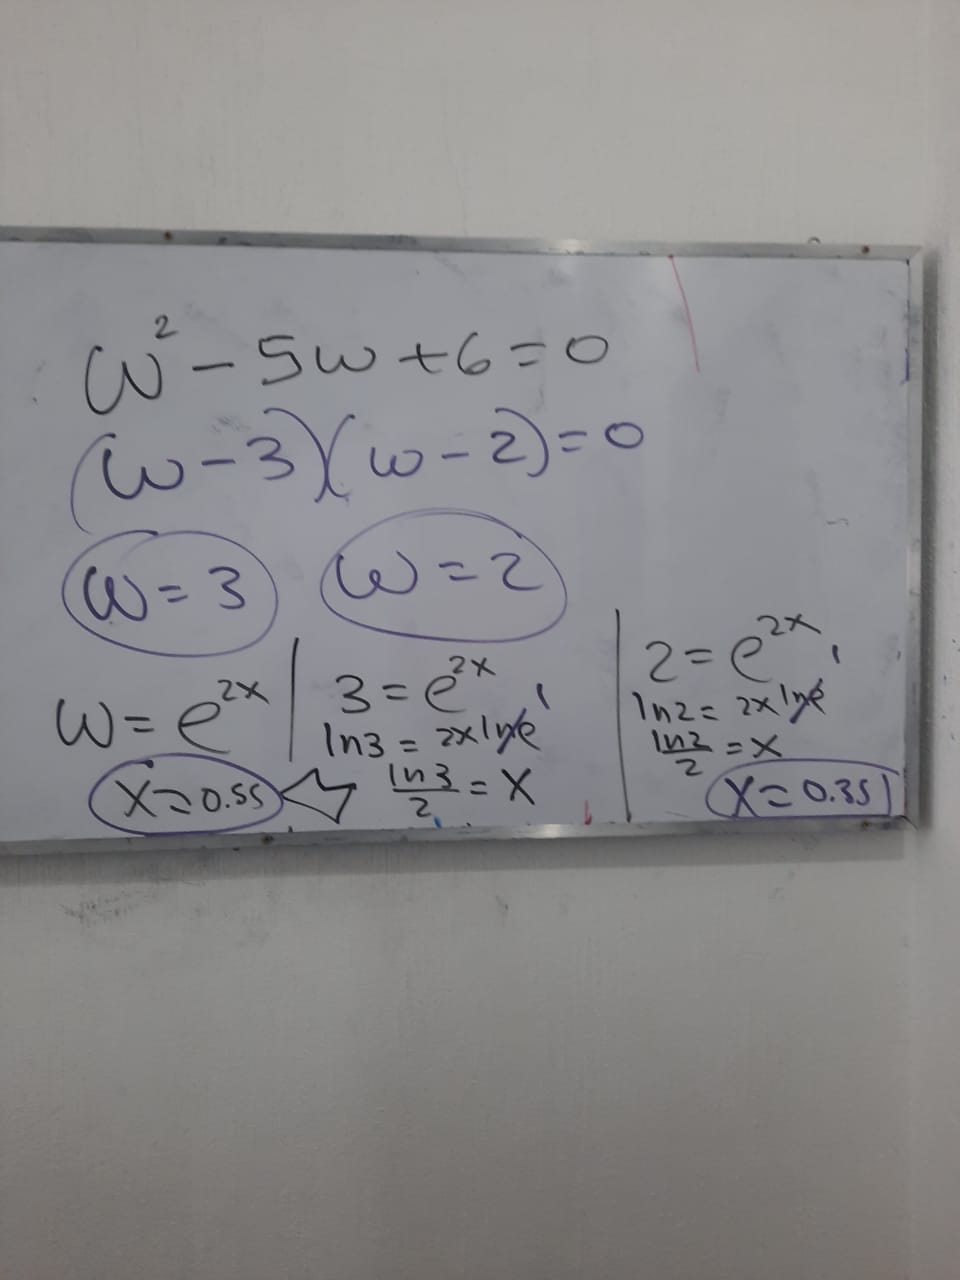 w² - 5w + 6 = 0
(w - 3)(w - 2) = 0
w = 3
w = 2
w = e^2x
x = 0.55
3 = e^2x
ln3 = 2x lne 1
ln3/2 = x
2 = e^2x
ln2 = 2x lne 1
ln2/2 = x
x = 0.35